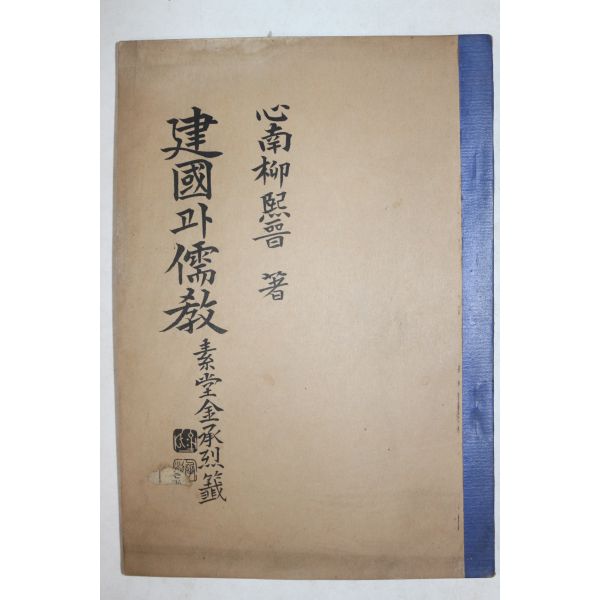 心南柳熙晉 著
建國과儒教
素堂金承烈籤